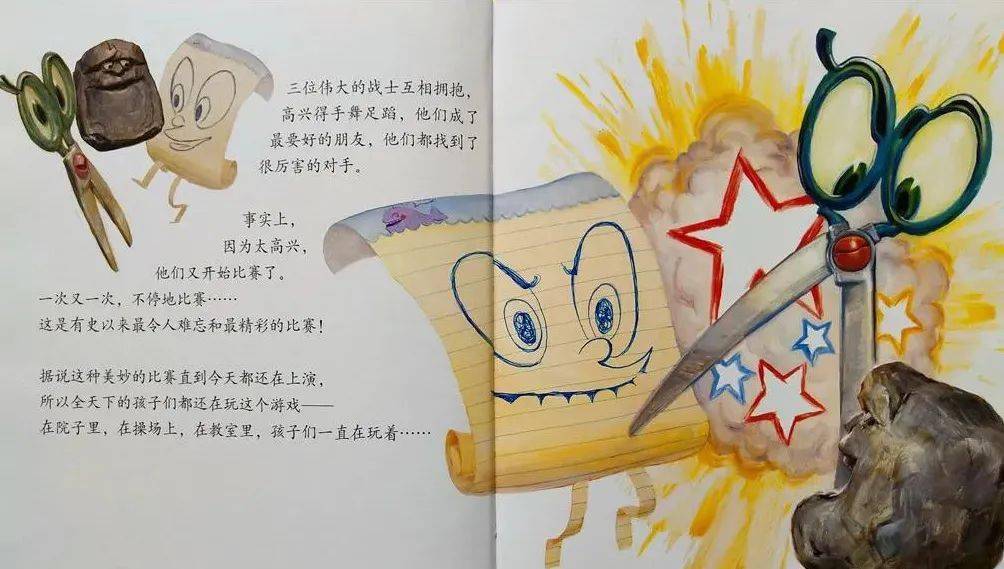 三位伟大的战士互相拥抱，
高兴得手舞足蹈，他们成了
最要好的朋友，他们都找到了
很厉害的对手。
事实上，
因为太高兴，
他们又开始比赛了。
一次又一次，不停地比赛……
这是有史以来最令人难忘和最精彩的比赛！
据说这种美妙的比赛直到今天都还在上演，
所以全天下的孩子们都还在玩这个游戏——
在院子里，在操场上，在教室里，孩子们一直在玩着……